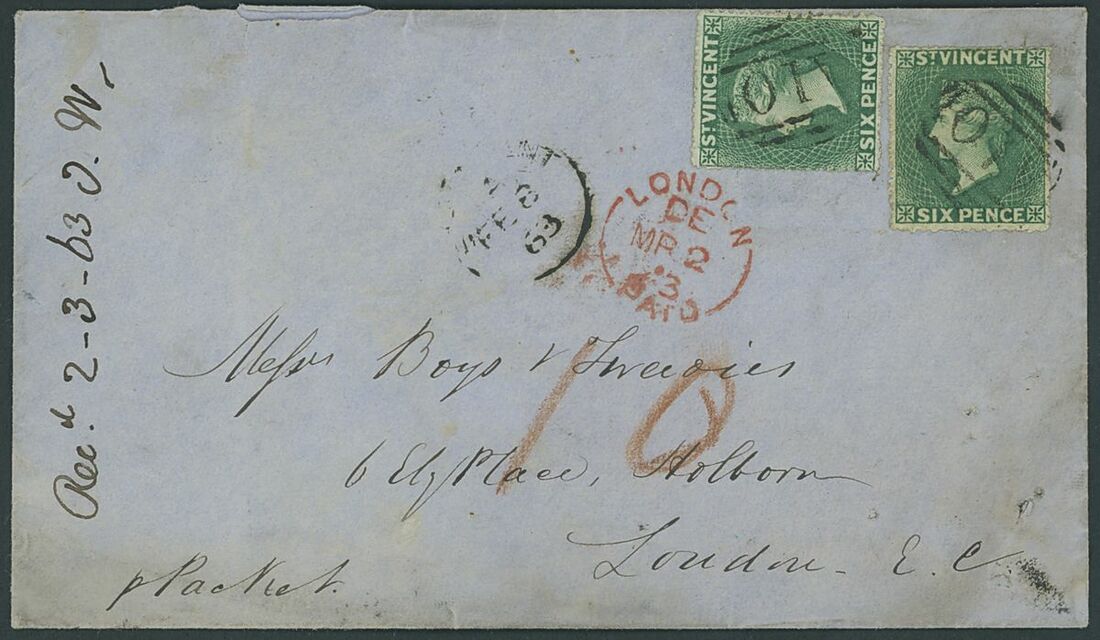 ST VINCENT
SIX PENCE
ST VINCENT
SIX PENCE
A10
FE 8
63
LONDON
DE
MR 2
63
PAID
10
Recd. 2-3-63 J. W.
Messrs Boys & Tweedies
6 Ely Place, Holborn
London. E. C
p Packet.